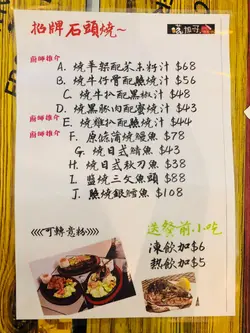 招牌石頭燒~
廚師推介
A. 燒羊架配芥末籽汁 $68
B. 燒牛仔骨配燒汁 $56
C. 燒牛扒配黑椒汁 $48
D. 燒黑豚肉配蜜燒汁 $43
廚師推介
E. 燒雞扒配燒汁 $44
廚師推介
F. 原條蒲燒鰻魚 $78
G. 燒日式鯖魚 $43
H. 燒日式秋刀魚 $38
I. 鹽燒三文魚頭 $48
J. 燒銀鱈魚 $108
<<<<可轉意粉>>>>
送餐前小吃
凍飲加$6
熱飲加$5